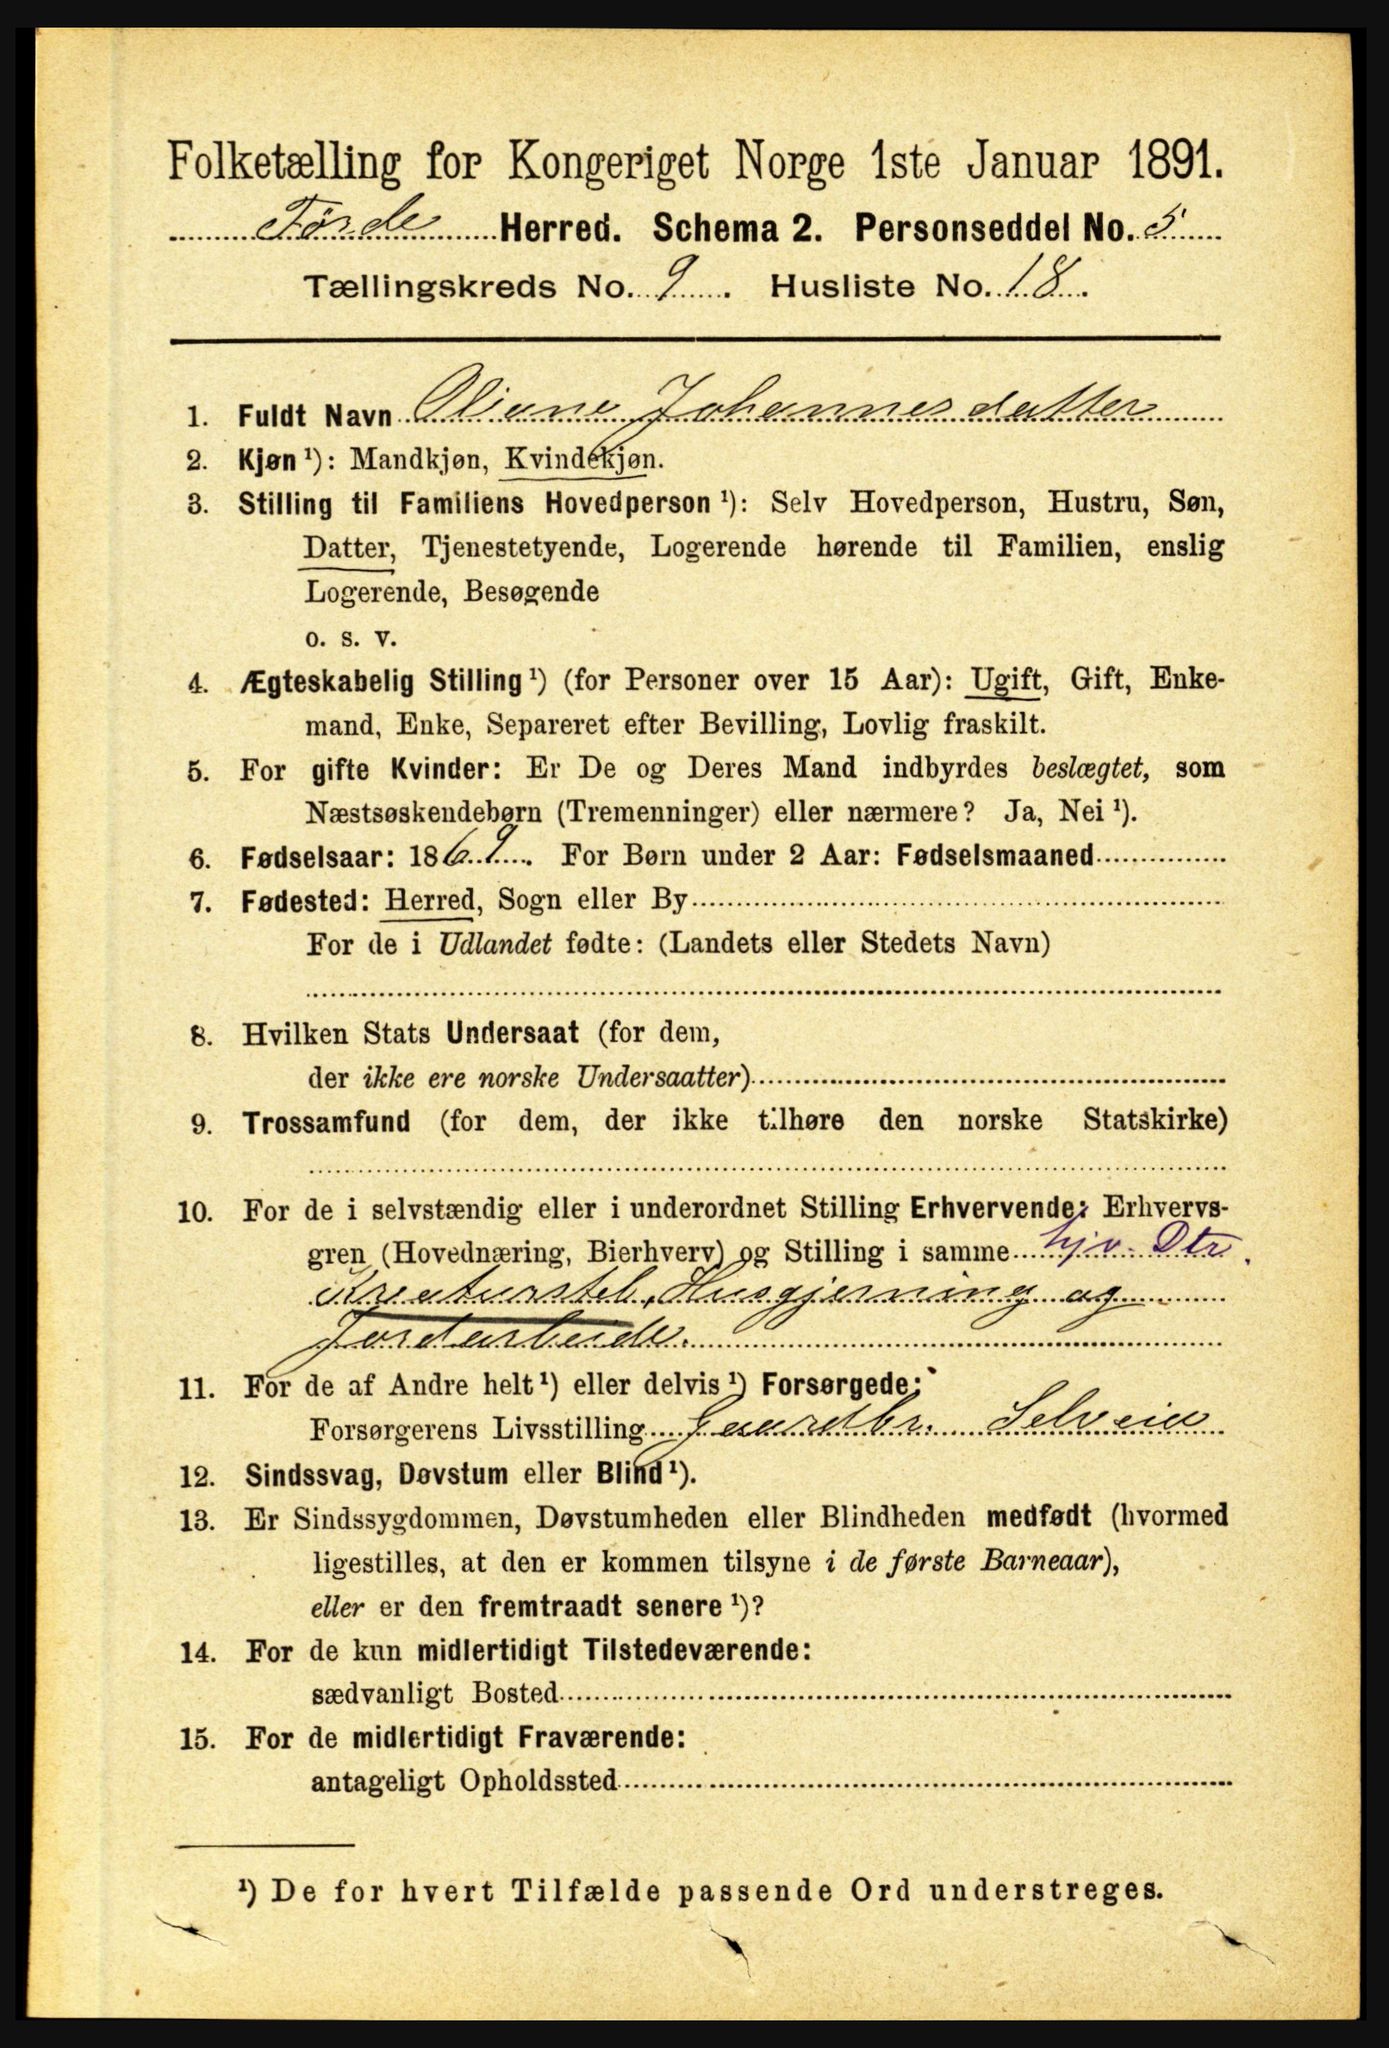 Folketælling for Kongeriget Norge 1ste Januar 1891.
Førde Herred. Schema 2. Personseddel No. 5
Tællingskreds No. 9. Husliste No. 18.
1. Fuldt Navn Oliane Johannesdatter
2. Kjøn ¹): Mandkjøn, Kvindekjøn.
3. Stilling til Familiens Hovedperson ¹): Selv Hovedperson, Hustru, Søn,
Datter, Tjenestetyende, Logerende hørende til Familien, enslig
Logerende, Besøgende
o. s. v.
4. Ægteskabelig Stilling ¹) (for Personer over 15 Aar): Ugift, Gift, Enke-
mand, Enke, Separeret efter Bevilling, Lovlig fraskilt.
5. For gifte Kvinder: Er De og Deres Mand indbyrdes beslægtet, som
Næstsøskendebørn (Tremenninger) eller nærmere? Ja, Nei ¹).
6. Fødselsaar: 1869. For Børn under 2 Aar: Fødselsmaaned
7. Fødested: Herred, Sogn eller By
For de i Udlandet fødte: (Landets eller Stedets Navn)
8. Hvilken Stats Undersaat (for dem,
der ikke ere norske Undersaatter)
9. Trossamfund (for dem, der ikke tilhøre den norske Statskirke)
10. For de i selvstændig eller i underordnet Stilling Erhvervende: Erhvervs-
gren (Hovednæring, Bierhverv) og Stilling i samme hjv. Dtr.
Kreaturstel, Husgjerning og
Jordarbeide.
11. For de af Andre helt ¹) eller delvis ¹) Forsørgede:
Forsørgerens Livsstilling Gaardbr. Selveier
12. Sindssvag, Døvstum eller Blind ¹).
13. Er Sindssygdommen, Døvstumheden eller Blindheden medfødt (hvormed
ligestilles, at den er kommen tilsyne i de første Barneaar),
eller er den fremtraadt senere ¹)?
14. For de kun midlertidigt Tilstedeværende:
sædvanligt Bosted
15. For de midlertidigt Fraværende:
antageligt Opholdssted
¹) De for hvert Tilfælde passende Ord understreges.